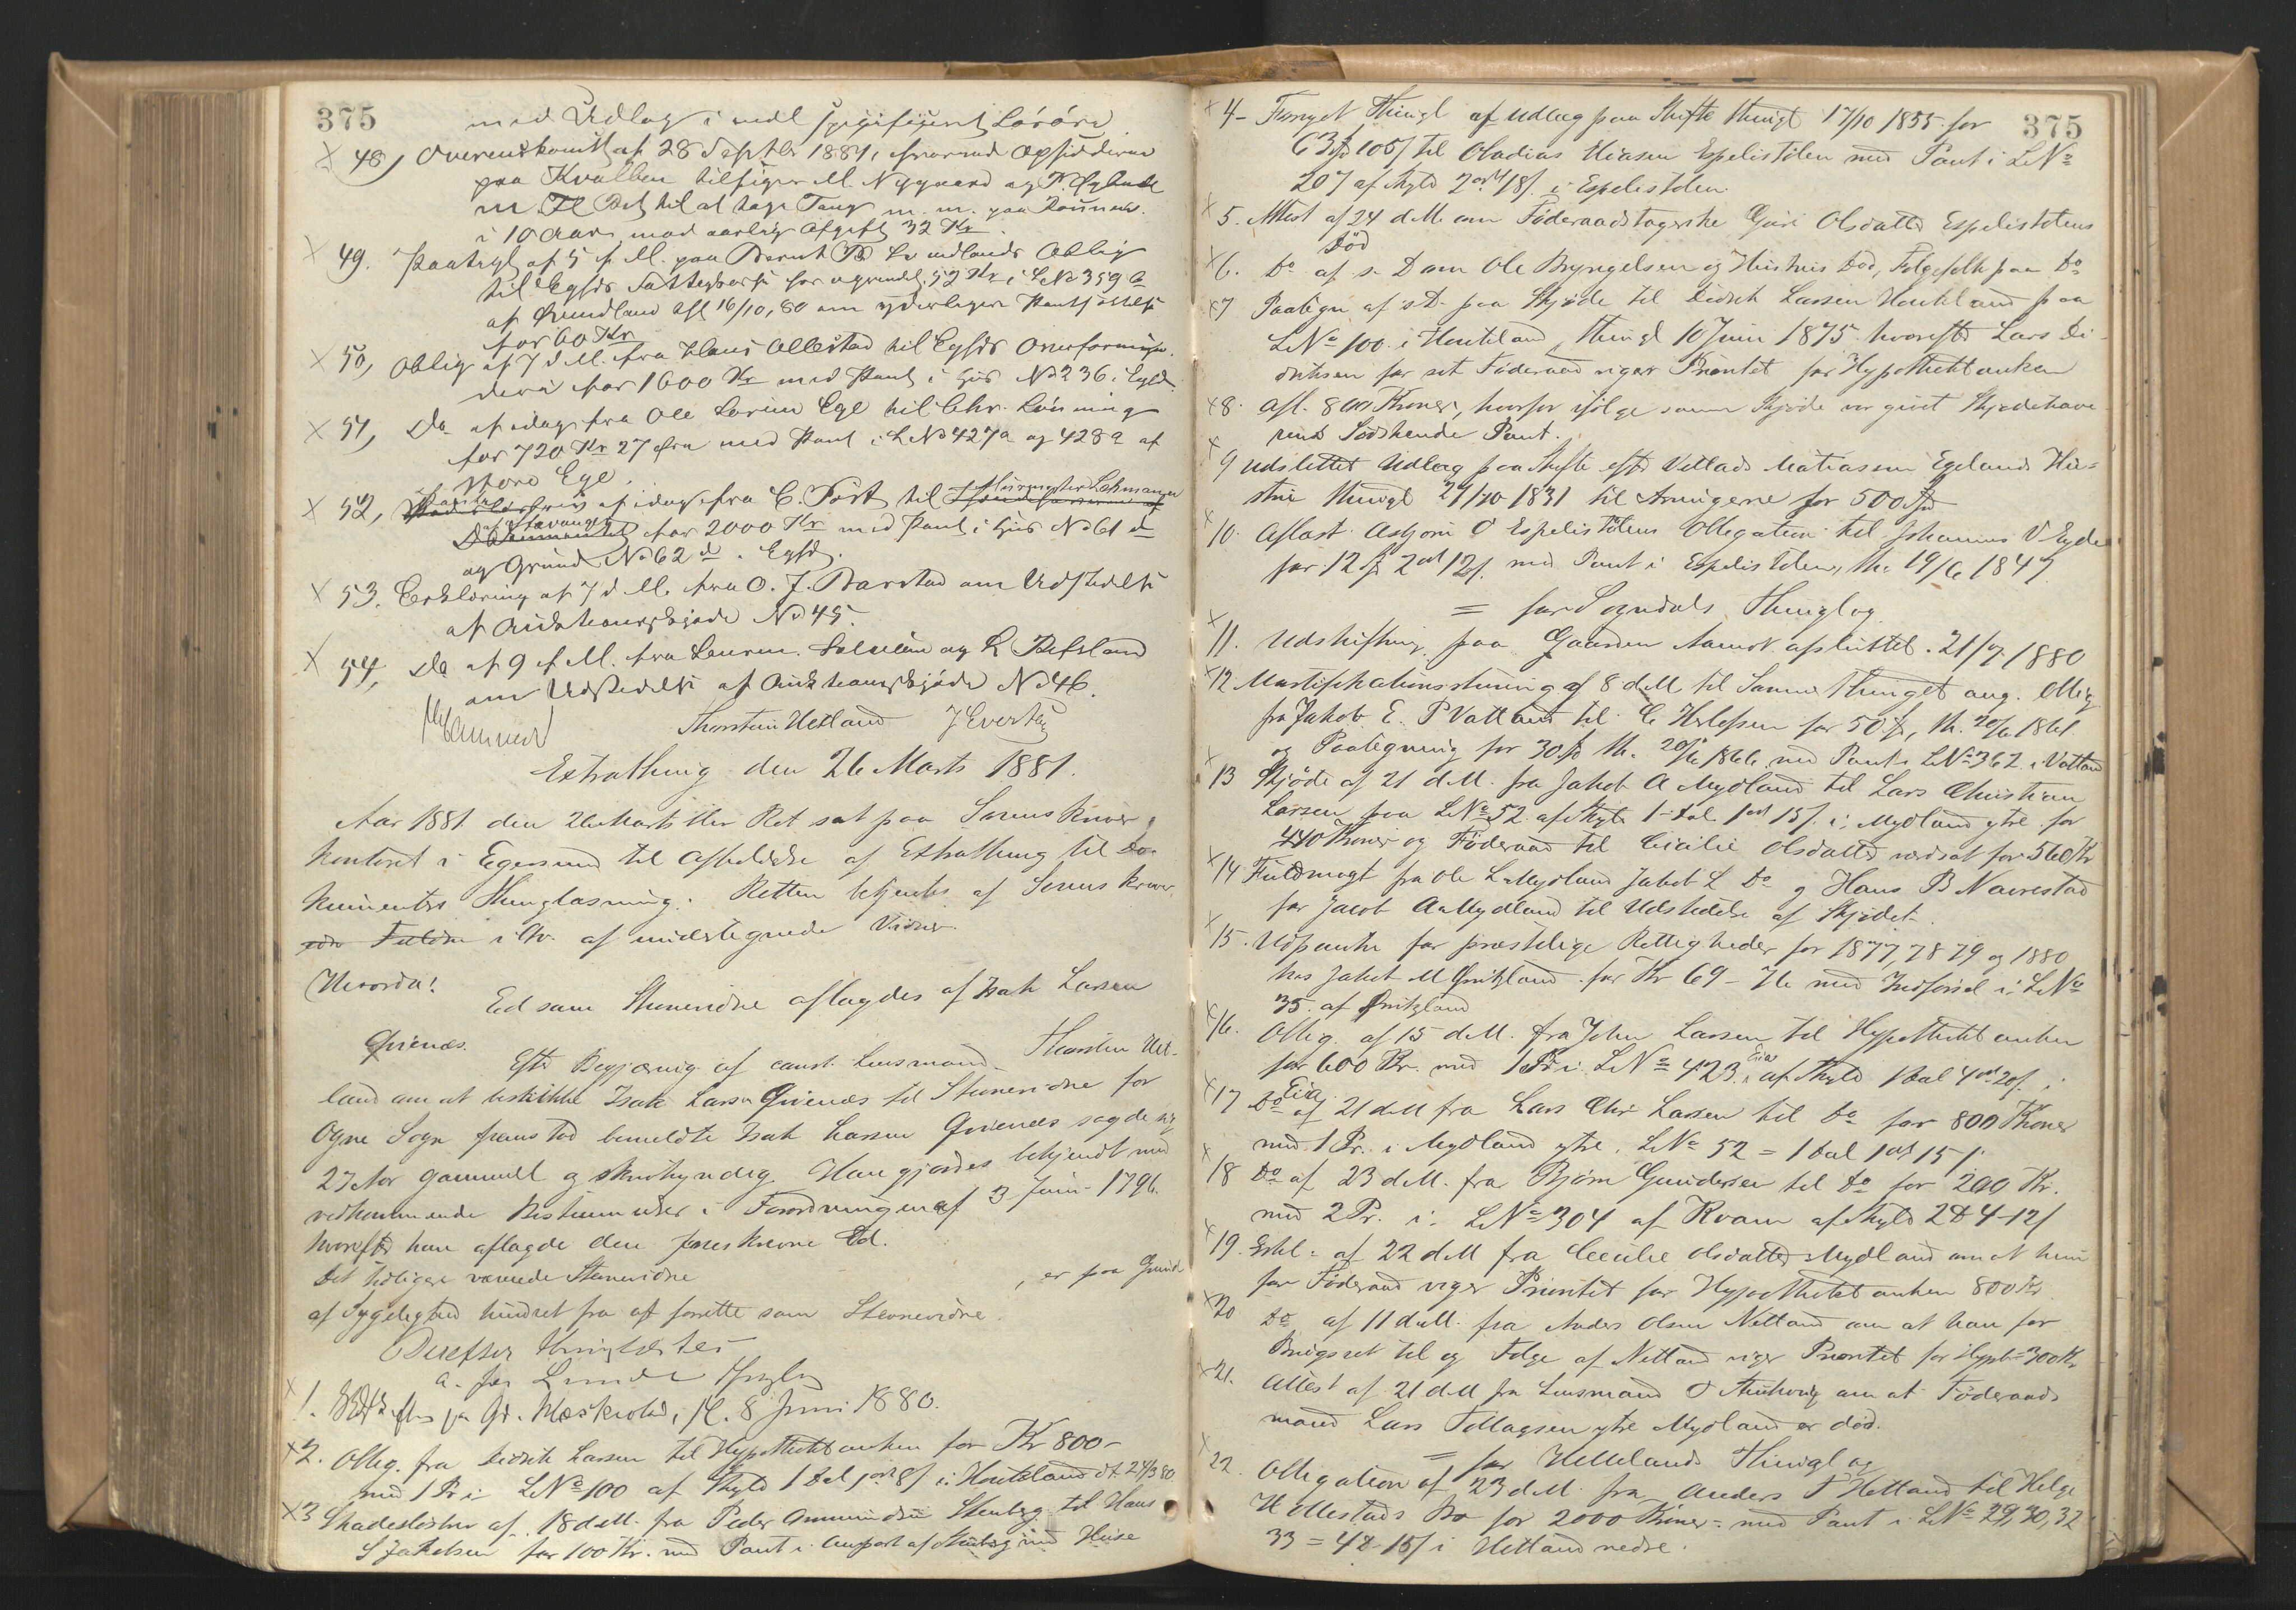 375
med Udlæg i
48, Overenskomst af 28 Septbr 1881,
paa Kvalben M. Nygaard og P.
til at tage Tang m. m. paa
i 10 Aar mod aarlig Afgift 32 Kr.
49. Paategn af 5 d. M. paa Oblig
til Egsds 52 Kr i LNo 359 a
af 16/10, 80 om yderligere Pantsættelse
for 60 Kr
50, Oblig af 7 d M. fra Claus Ollestad til Egsds Overformyn-
deri for 1600 Kr med Pant i Hus No 236 i Egsd.
51, Do af idag fra Ole Ege til Chr. Lønning
for 720 Kr 27 Øre med Pant i LNo 427a og 428a af
store Ege.
52, af idag fra C. til
for 2000 Kr med Pant i Hus No 61
og Grund No 62 i Egsd.
53. Erklæring af 7 d M. fra O. J. Barstad om Udstedelse
af Auktionsskjøde No 45.
54, Do af 9 d M. fra og
om Udstedelse af Auktionsskjøde No 46.
Thorstein Hetland J Evertsen
Extrathing den 26 Marts 1881.
Aar 1881 den 26 Marts blev Ret sat paa Sorenskriver
kontoret i Egersund til Afholdelse af Extrathing til Do-
kumenters Thinglæsning. Retten betjentes af Sorenskriver
af undertegnede Vidner.
Hvorda!
Ed som Stævnevidne aflagdes af Isak Larsen
Qvienæs.
Efter Begjæring af const. Lensmand Thorstein Het-
land om at beskikke Isak Larsen Qvienæs til Stævnevidne for
Ogne Sogn fremstod bemeldte Isak Larsen Qvienæs sagde sig
27 Aar gammel og skrivkyndig. Han gjordes bekjendt med
vedkommende Bestemmelser i Forordningen af 3 Juni 1796.
hvorefter han aflagde den foreskrevne Ed.
Det tidligere værende Stævnevidne , er paa Grund
af Sygelighed hindret fra at forrette som Stævnevidne.
Derefter thinglæstes
a. for Lunds Thinglag
1. paa Gd. 8 Juni 1880.
2. Oblig. fra Didrik Larsen til Hypothekbanken for Kr 800-
med 1 Pr i LNo 100 af Skyld 1 Dal 1 ort 8 s i Houkland dt. 24/3 80
3 Skadesløsbr af 18 d M. fra Peder Ommundsen Stenberg til Hans
S Jakobsen for 100 Kr. med Pant i Anpart af Stenberg med Huse
375
4- Thingl af Udlæg paa Skifte thingl 17/10 1835 for
63 105 s til Obadias Espelistølen med Pant i LNo
207 af Skyld 2 ort 18 s i Espelistølen.
5. Attest af 24 d M. om Føderaadstagerske Guri Olsdatter Espelistølens
Død
6. Do af s. D om Ole Bryngelsen og Hustrus Død, Folgefolk paa Do
7 Paategn af s D. paa Skjøde til Didrik Larsen Houkland paa
LNo 100 i Houkland, thingl 10 Juni 1875 hvorefter Lars Di-
driksen for sit Føderaad viger Prioritet for Hypothekbanken
8. Afl. 800 Kroner, hvorfor ifølge samme Skjøde var givet Skjødehave
rens Sødskende Pant.
9 Udslettet Udlæg paa Skifte efter Vellads Matiasen Egelands Hu-
stru thingl 27/10 1831 til Arvingerne for 500 Spd
10. Aflæst Asbjørn O Espelistølens Obligation til Johannes V Eyde
for 12 2 ort 12 s. med Pant i Espelistølen, th. 19/6 1847
= for Sogndals Thinglag
11. Udskiftning paa Gaarden Aamot afsluttet 21/7 1880
12 Mortifikationsstevning af 8 d M til Sommerthinget ang. Oblig
fra Jakob E. P Vatland til C Herlofsen for 50 , th. 20/6 1861
og Paategning for 30 th. 20/6 1866 med Pant i LNo 362 i Vatland
13 Skjøde af 21 d M. fra Jakob A Mydland til Lars Christian
Larsen paa LNo 52 af Skyld 1 Dal 1 ort 15 s i Mydland ytre for
440 Kroner og Føderaad til Cicilie Olsdatter værdsat for 560 Kr
14 Fuldmagt fra Ole L Mydland Jakob L Do og Hans B Naverstad
for Jacob A Mydland til Udstedelse af Skjødet
15. Udpantn for præstelige Rettigheder for 1877, 78 79 og 1880
hos Jakob M Qvitzland for Kr 69- med Indførsel i LNo
35. af Qvitzland
16. Oblig. af 15 d M. fra John Larsen til Hypothekbanken
for 600 Kr. med 1 Pr. i LNo 423 Eia af Skyld 1 Dal 4 ort 20 s. i
Eia
17 Do af 21 d M fra Lars Chr Larsen til Do for 800 Kroner
med 1 Pr. i Mydland ytre. LNo 52 = 1 Dal 1 ort 15 s
18 Do af 23 d M. fra Bjørn Gundersen til Do for 200 Kr.
med 2 Pr. i LNo 304 af Kvam af Skyld 2 D 4-12 s
19. Erkl. af 22 d M fra Cecilie Olsdatter Mydland om at hun
for Føderaad viger Prioritet for Hypothekbanken 800 Kr
20 Do af 11 d M. fra Anders Olsen Netland om at han for
Brugsret til og Følge af Netland viger Prioritet for Hypb. 300 Kr
21. Attest af 21 d M fra Lensmand om at Føderaads
mand Lars Tollagsen ytre Mydland er død.
= for Hellelands Thinglag
22. Obligation af 23 d M. fra Anders T Hetland til Helge
H Ollestads Bo for 2000 Kroner = med Pant i LNo 29, 30, 32
33 = 4 D 15 s i Hetland nedre.